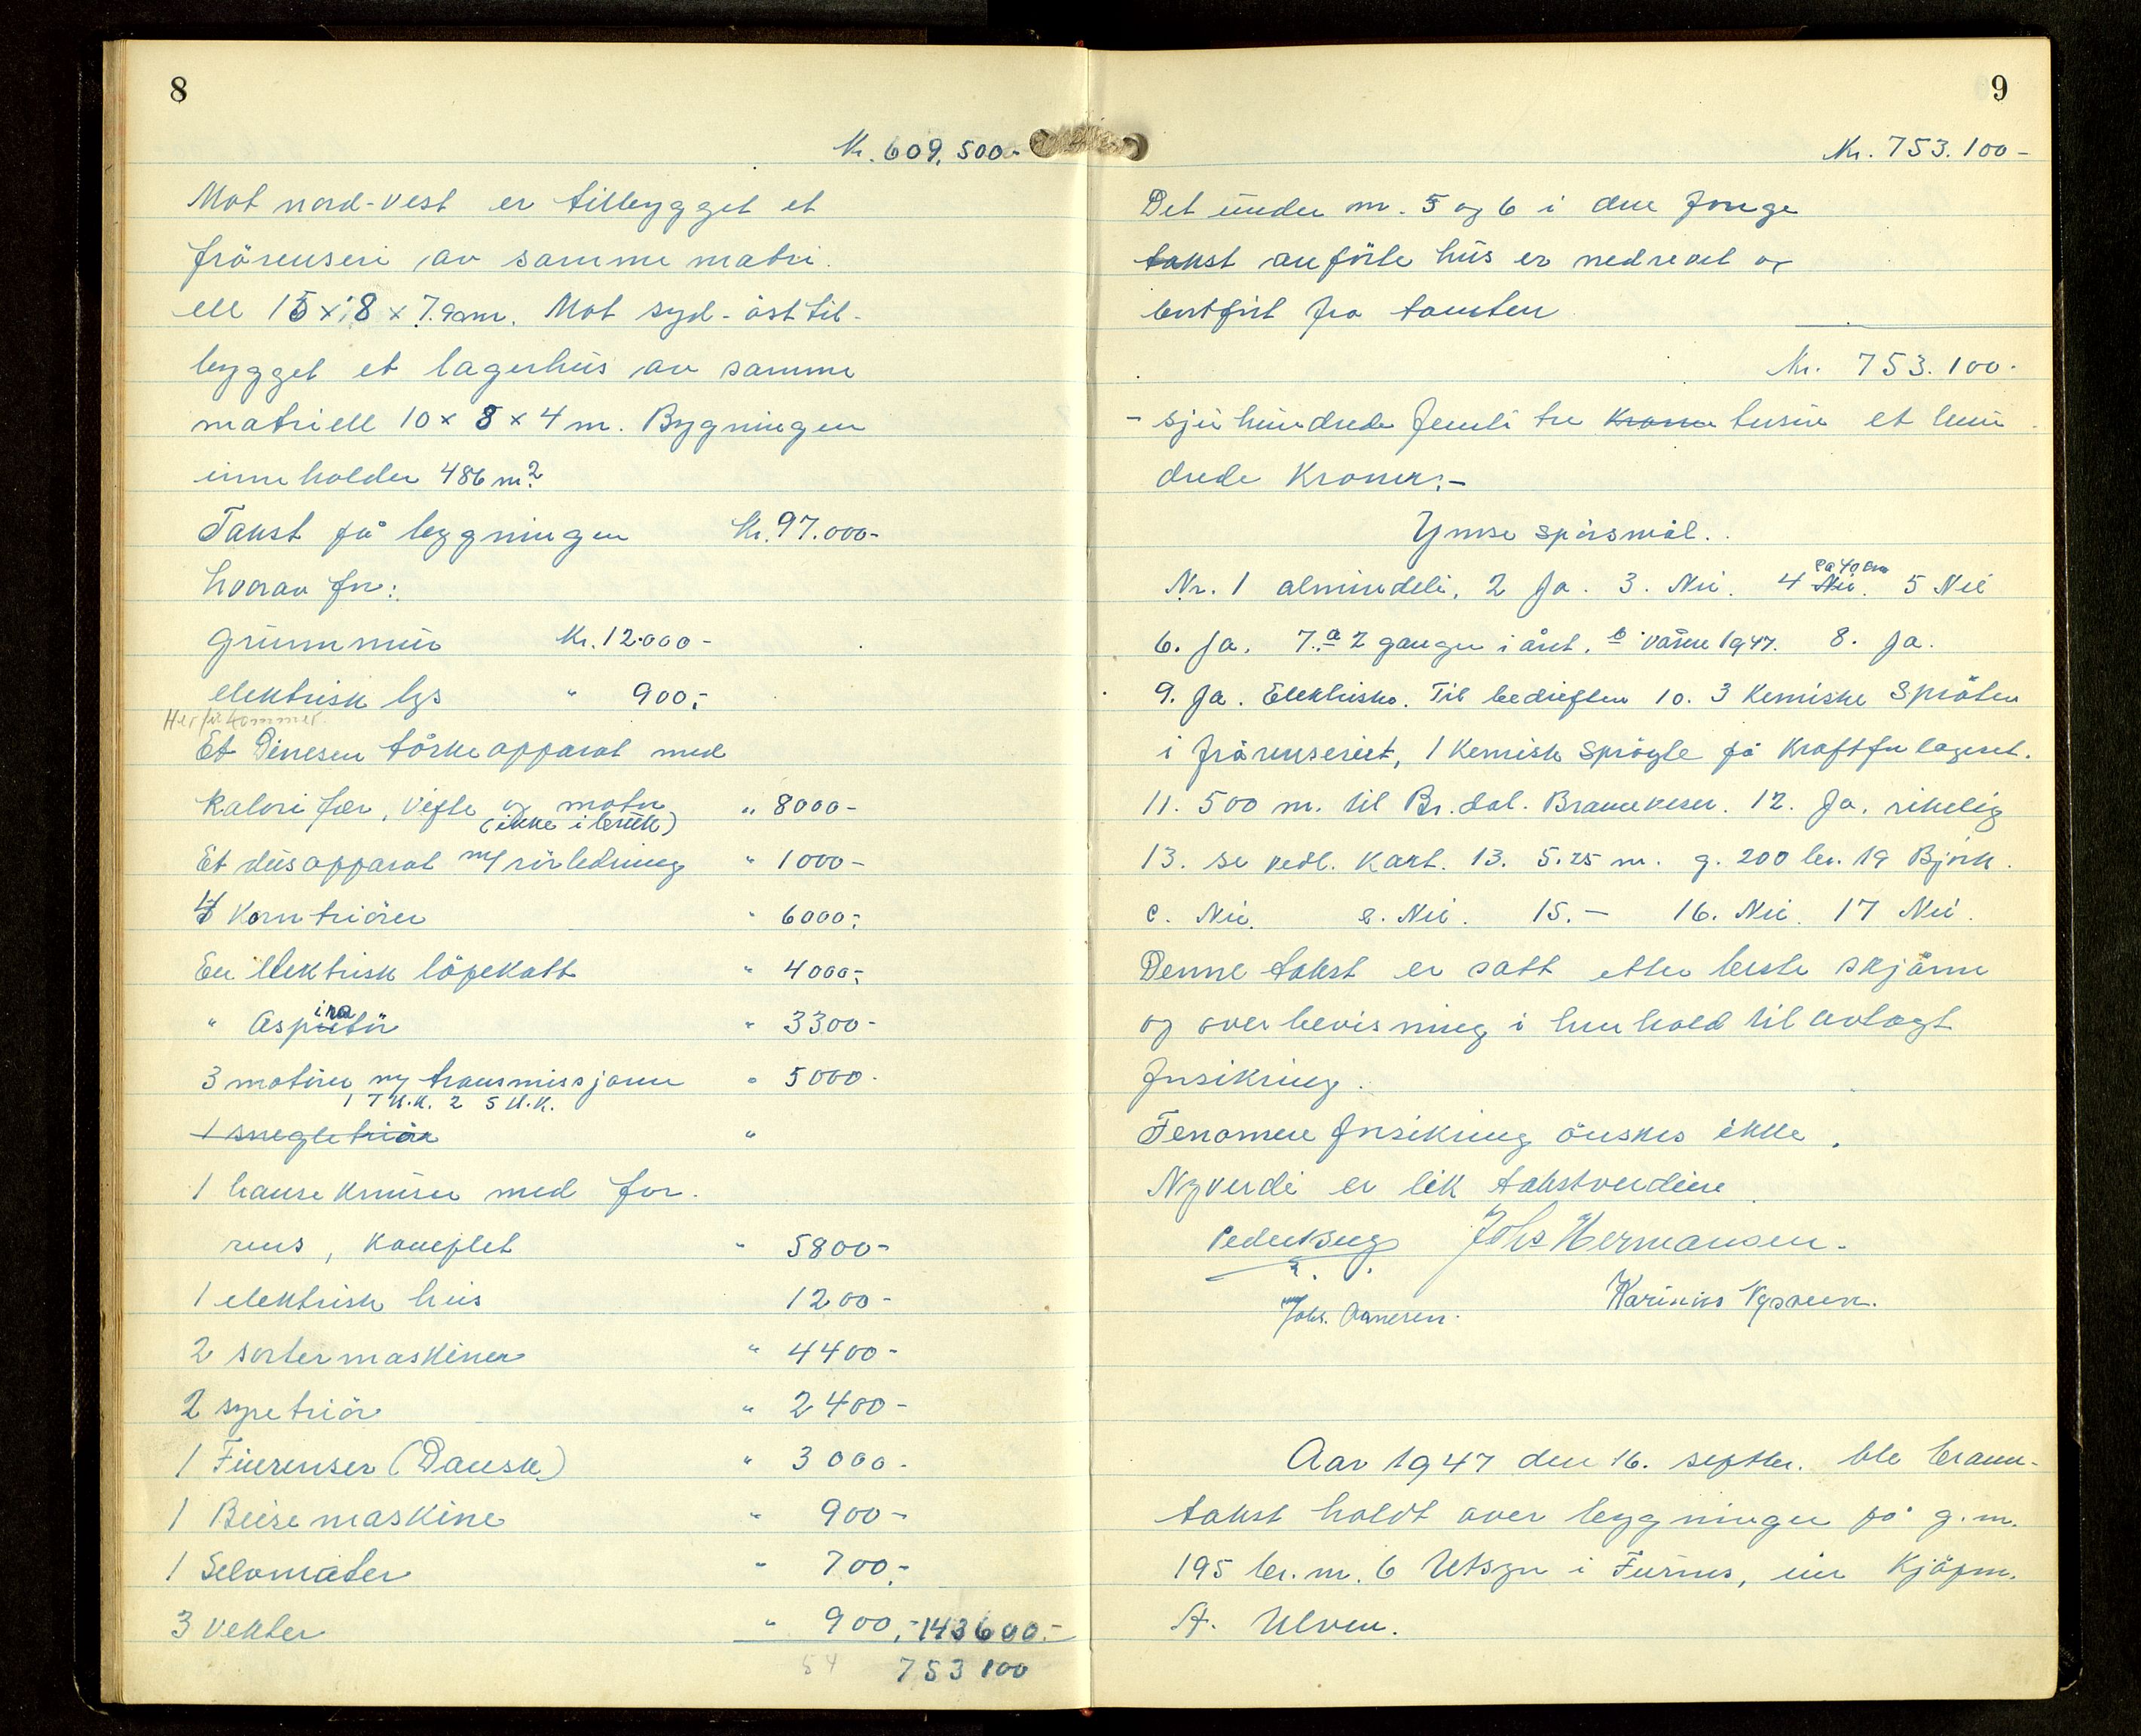 8
Kr. 609.500-
Mot nord-vest er tilbygget et
frörenseri av samme matri
ell 15 x 18 x 7.90 m. Mot syd-öst til-
bygget et lagerhus av samme
matriell 10 x 8 x 4 m. Bygningen
inneholder 486 m²
Takst på byggningen Kr. 97.000-
hvorav for:
Grunnmur Kr. 12.000-
elektrisk lys " 900;-
Herfir kommer.
Et Dinesen törkeapparat med
Kalorifer, vifte og motor " 8000-
(ikke i bruk)
Et diisapparat m/ rörledning " 1000-
4 Korntriörer " 6000;-
En elektrisk löpekatt " 4000;-
" Aspiratör " 3300-
3 motorer m/ transmissjoner " 5000-
1 7 H.K. 2 5 H.K.
1 snegletriör "
1 hansekruser med for-
rens, komplet " 5800-
1 elektrisk heis 1200-
2 sortermaskiner " 4400-
2 spretriör " 2400-
1 Finrenser (Dansk) " 3000-
1 Beisemaskine " 900-
1 Selvmater " 700,-
3 vekter " 900,- 143600.-
54 753 100
9
Kr. 753.100-
Det under nr. 5 og 6 i den forrige
takst anförte hus er nedrevet og
bortfört fra tomten
Kr. 753.100-
- sju hundrede femti tre Kroner tusen et hun
drede Kroner.-
Ymse spörsmål.
ca 40 cm
Nr. 1 almindeli. 2 Ja. 3. Nei. 4 Nei. 5 Nei
6. Ja. 7. a 2 ganger i året. b våren 1947. 8. Ja.
9. Ja. Elektrisk. Til bedriften 10. 3 Kemiske Spröiter
i frörenseriet, 1 Kemisk Spröyte på Kraftforlageret.
11. 500 m. til Br.dal. Brannvesen. 12. Ja. rikelig
13. se vedl. Kart. 13. 5.25 m. g. 200 br. 19 Björk.
c. Nei. e. Nei. 15. - 16. Nei. 17 Nei.
Denne takst er satt etter beste skjönn
og overbevisning i henhold til avlagt
forsikring.
Fenomen forsikring önskes ikke.
Nyverdi er lik takstverdien
Peder Berg Johs Hermansen.
Johs. Arnesen. Karinius Nysveen.
Aar 1947 den 16. septbr. ble brann-
takst holdt over byggninger på g.nr.
195 br.nr. 6 Utsyn i Furnes, eier Kjöpm.
A. Ulven.